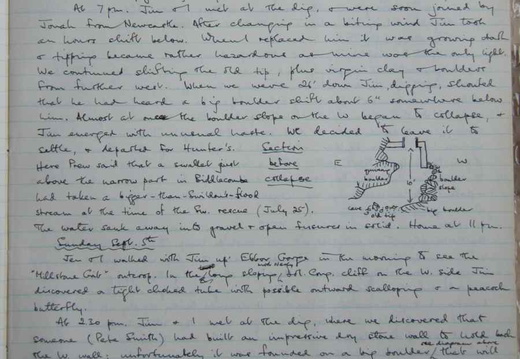 At 7 pm. Jim & I met at the dig, & were soon joined by
Jonah from Newcastle. After changing in a biting wind Jim took
an hours shift below. When I replaced him it was growing dark
& tipping became rather hazardous as mine was the only light.
We continued shifting the old tip, plus virgin clay & boulders
from further west. When we were 26' down Jim, digging, shouted
that he had heard a big boulder shift about 6" somewhere below
him. Almost at once the boulder slope on the W began to collapse, &
Jim emerged with unusual haste. We decided to leave it to
settle, & departed for Hunter's. Section
Here Prew said that a smallet just before
above the narrow part in Biddlecombe collapse
had taken a bigger-than-Swildons-flood
stream at the time of the Sw. rescue (July 25th).
The water sank away into gravel & open fissures in solid. Home at 11 pm.
E
W
boulder
boulder
slope
10'
old tip
big boulder
Sunday Sept. 5th
Jen & I walked with Jim up Ebbor Gorge in the morning to see the
"Millstone Grit" outcrop. In the long sloping, Carp. cliff on the W. side Jim
discovered a tight choked tube with possible outward scalloping & a peacock
butterfly.
At 2.30 pm. Jim & I met at the dig, where we discovered that
someone (Pete Smith) had built an impressive dry stone wall to hold back
see diagram above
the W. wall: unfortunately it was founded on a big boulder that will